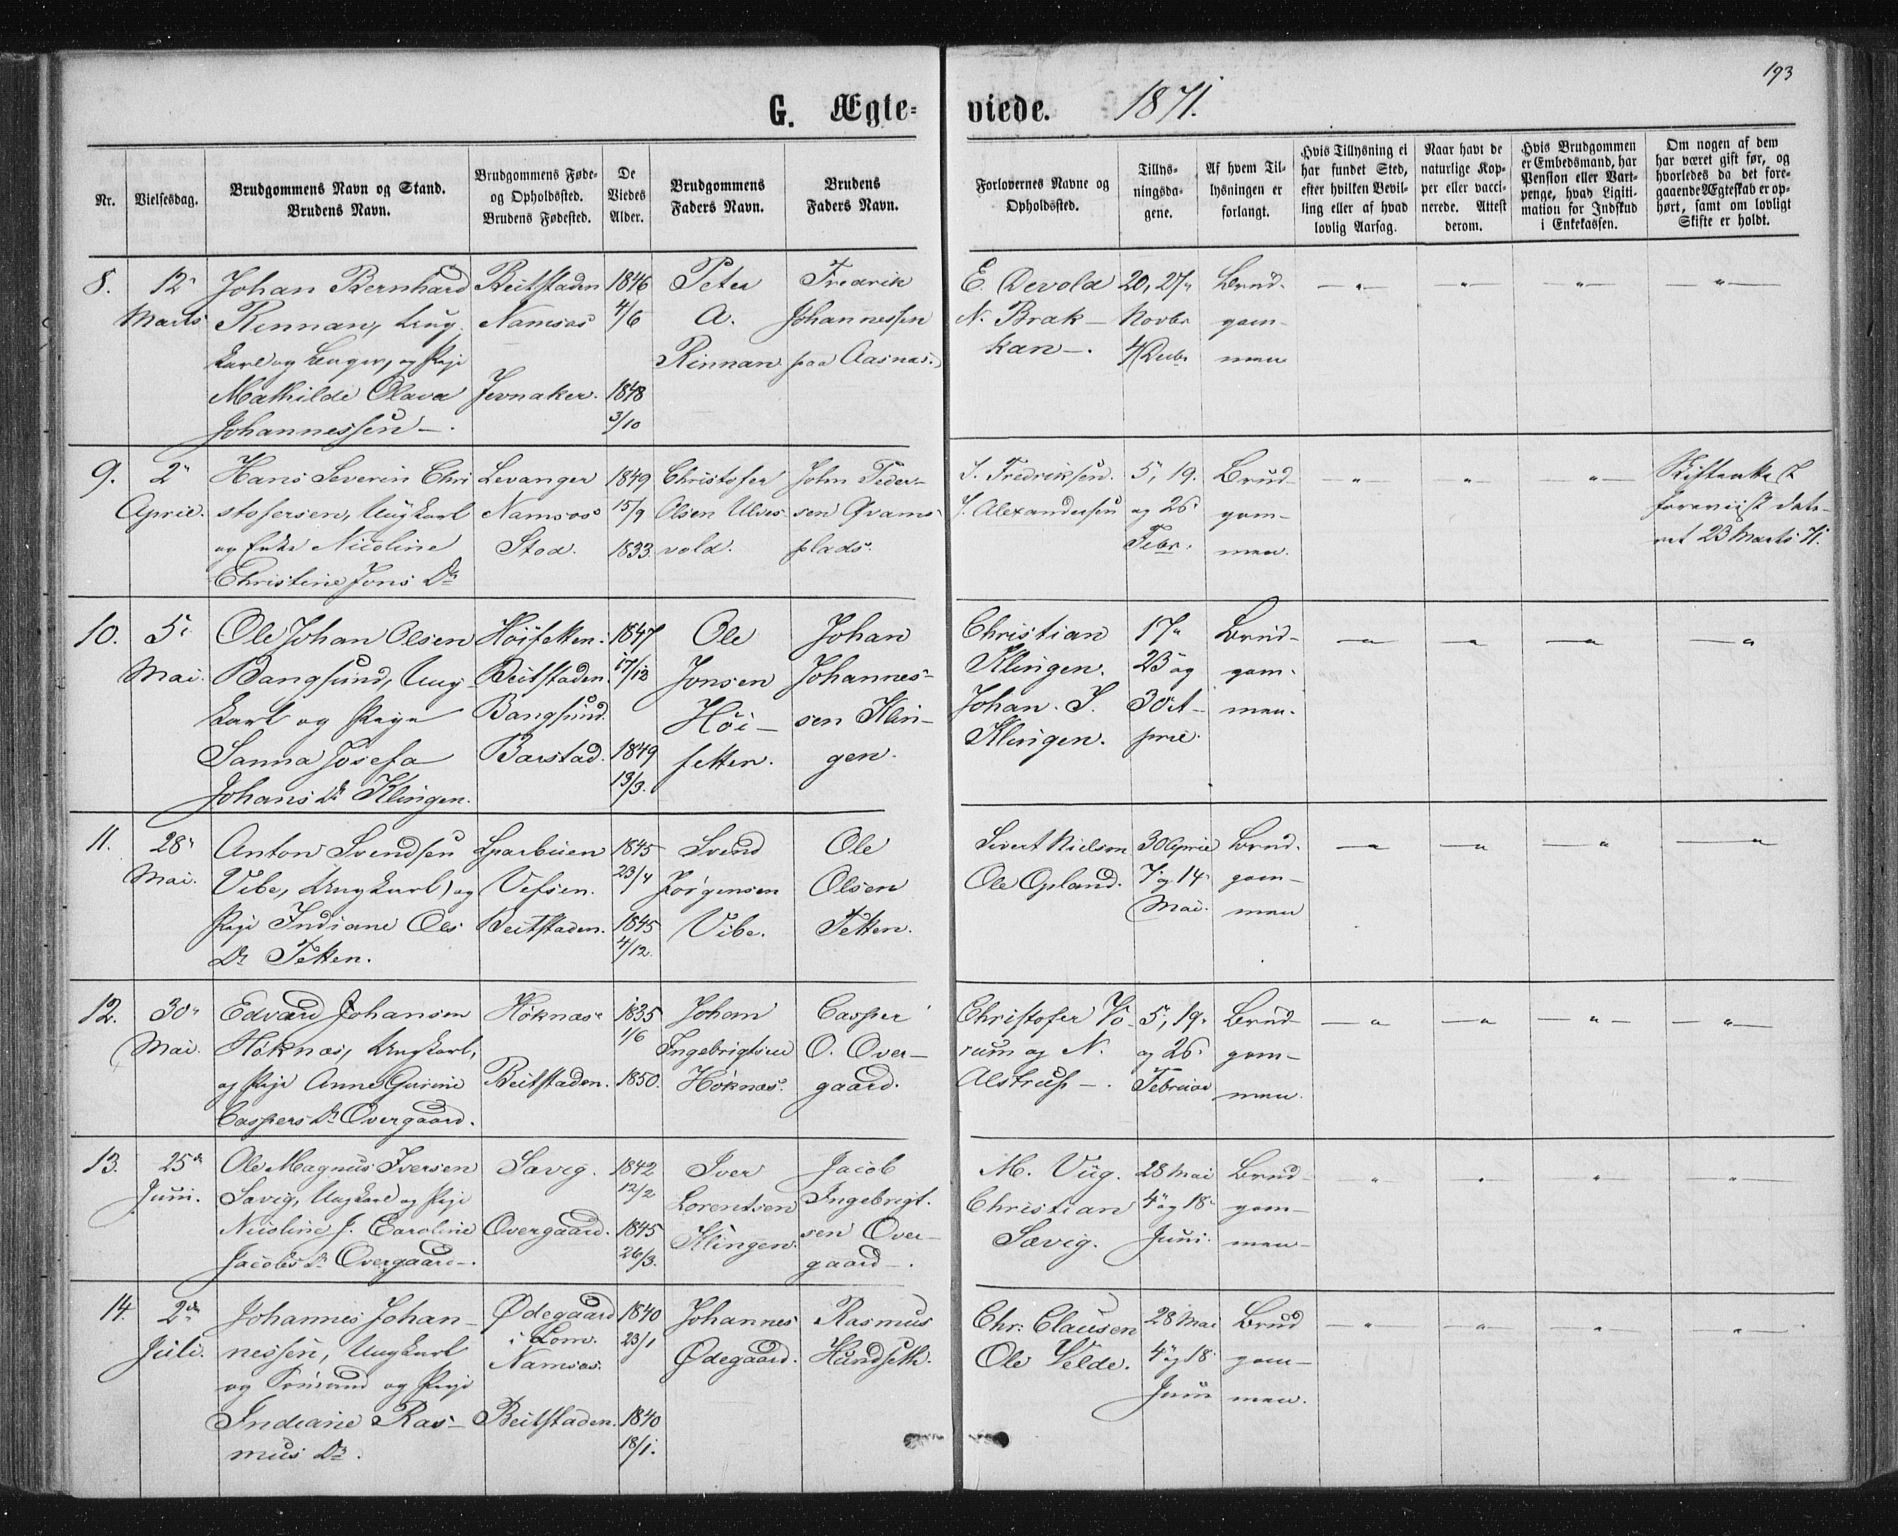 193
G. Ægte-
viede. 1871.
Nr.
Vielsesdag.
Brudgommens Navn og Stand.
Brudens Navn.
Brudgommens Føde-
og Opholdssted.
Brudens Fødested.
De
Viedes
Alder.
Brudgommens
Faders Navn.
Brudens
Faders Navn.
Forlovernes Navne og
Opholdssted.
Tillys-
ningsda-
gene.
Af hvem Til-
lysningen er
forlangt.
Hvis Tillysning ei
har fundet Sted,
efter hvilken Bevil-
ling eller af hvad
lovlig Aarsag.
Naar havt de
naturlige Kop-
per eller vacci-
nerede. Attest
derom.
Hvis Brudgommen
er Embedsmand, har
Pension eller Vart-
penge, hvad Ligiti-
mation for Indskud
i Enkekassen.
Om nogen af dem
har været gift før, og
hvorledes da det fore-
gaaende Ægteskab er op-
hørt, samt om lovligt
Skifte er holdt.
8.
12"
Marts
Johan Bernhard
Rennan, Ung
karl og, og Pige
Mathilde Olava
Johannessen -.
Beitstaden
Namsos
Jevnaker.
1846
4/6
1848
3/10
Peter
A.
Rinnan
Fredrik
Johannessen
paa Aasnas.
E. Devold
N. Brak-
kan -.
20, 27"
Novbr
4 Decbr
Brud-
gom-
men
-"- -"- -"- -"-
9.
2"
April.
Hans Severin Chri
stofersen, Ungkarl
og Enke Nicoline
Christine Jons Dr
Levanger
Namsos
Stod.
1849
15/9
1833
Christofer
Olsen Ulves-
vold.
John Peder-
sen Qvams-
plads.
S. Fredriksen.
J. Alexandersen
5, 19.
og 26"
Febr.
Brud-
gom-
men.
-"- -"- -"-
Skifteatt
foreviist date-
ret 23 Marts 71.
10.
5"
Mai.
Ole Johan Olsen
Bangsund, Ung-
karl og Pige
Sanna Josefa
Johans Dr Klingen.
Høifetten.
Beitstaden.
Bangsund.
Barstad.
1847
17/12
1849
13/3.
Ole
Jonsen
Høi-
fetten.
Johan
Johannes-
sen Klin-
gen.
Christian
Klingen.
Johan. J.
Klingen.
17"
23 og
30 A-
pril.
Brud-
gom-
men.
-"- -"- -"- -"-
11.
28"
Mai.
Anton Svendsen
Vibe, Ungkarl, og
Pige Indiane Ols
Dr Fetten.
Sparbuen
Vefsen.
Beitstaden.
1845
23/4
1845
4/12.
Svend
Jørgensen
Vibe.
Ole
Olsen
Fetten.
Sivert Nielsen
Ole Opland.
30 April
7 og 14"
Mai.
Brud.
gom-
men
-"- -"- -"- -"-
12.
30"
Mai.
Edvard Johansen
Høknæs, Ungkarl,
og Pige Anne Gurine
Caspers Dr Overgaard.
Høknæs"
Beitstaden.
1835
1/6
1850.
Johan
Ingebrigtsen
Høknæs.
Casper
O. Over-
gaard.
Christofer Vo-
rum og N.
Alstrup -.
5, 19"
og 26"
Februar
Brud-
gom-
men.
-"- -"- -"- -"-
13.
25de
Juni.
Ole Magnus Iversen
Sævig, Ungkarl og Pige
Nicoline J. Caroline
Jacobs Dr Overgaard-.
Sævig.
Overgaard.
1842
12/2
1845
26/3.
Iver
Lorentsen
Klingen.
Jacob
Ingebrigt-
sen Over-
gaard -.
M. Viig.
Christian
Sævig.
28 Mai
4" og 18"
Juni.
Brud-
gom-
men-
-"- -"- -"- -"-
14.
2de
Juli.
Johannes Johan-
nessen, Ungkarl
og Sømand og Pige
Indiane Ras-
mus Dr.
Ødegaard
i Lom.
Namsos.
Beitstaden.
1840
23/1
1840
18/1.
Johannes
Ødegaard.
Rasmus
Hundseth.
Chr: Clausen
Ole Velde.
28 Mai
4" og 18"
Juni
Brud
gom-
men.
-"- -"- -"- -"-